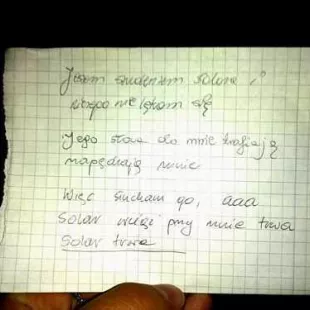 Jestem studentem Solara i
niczego nie lękam się
Jego słowa do mnie trafiają
napędzają mnie
Więc słucham go, aaa
Solar wciąż przy mnie trwa
Solar trwa